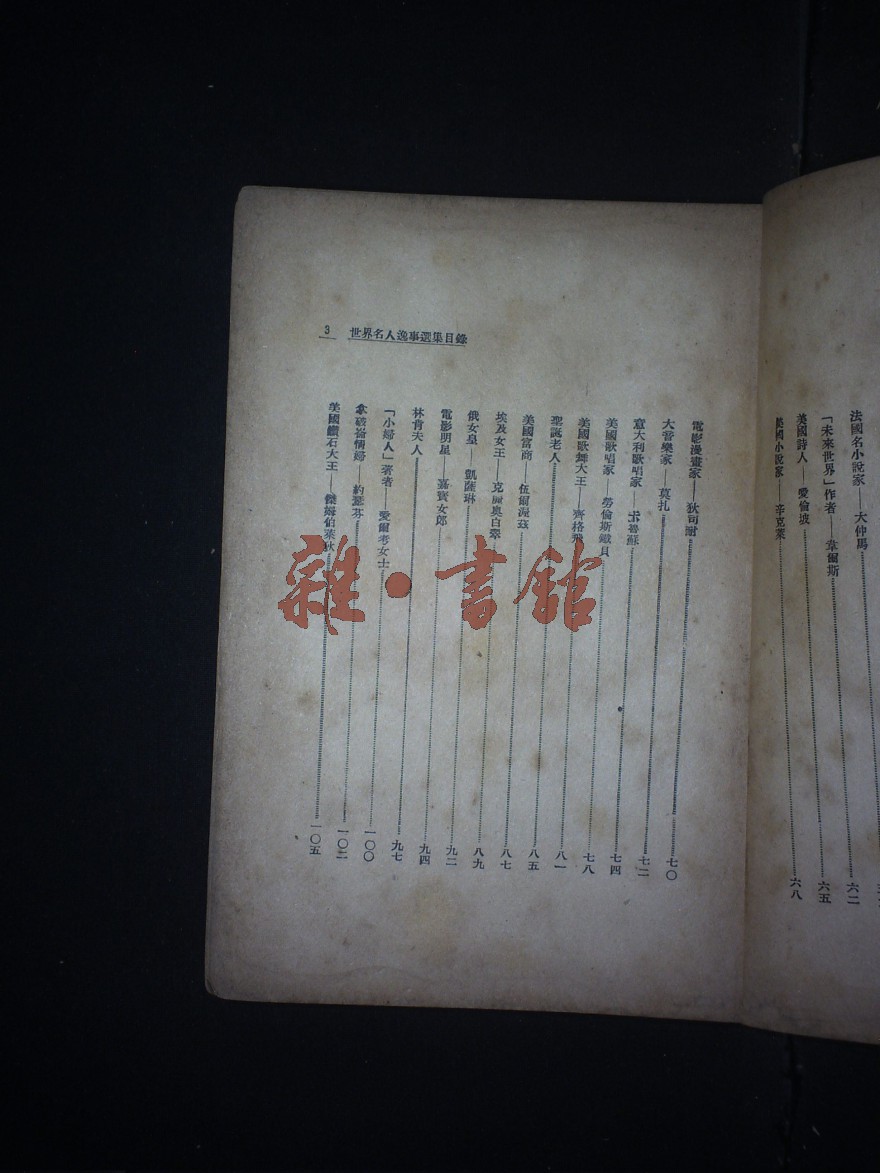 法國名小說家——大仲馬……六二
「未來世界」作者——韋爾斯……六五
美國詩人——愛倫坡……六八
美國小說家——辛克萊
世界名人逸事選集目錄
3
電影漫畫家——狄司耐……七〇
大音樂家——莫扎……七二
意大利歌唱家——卡魯蘇……七四
美國歌唱家——勞倫斯鐵貝……七八
美國歌舞大王——齊格飛……八一
聖誕老人……八五
美國富商——伍爾渥茲……八七
埃及女王——克麗奧白翠……八九
俄女皇——凱薩琳……九二
電影明星——嘉寶女郎……九四
林肯夫人……九七
「小婦人」著者——愛爾考女士……一〇〇
拿破崙情婦——約瑟芬……一〇二
美國鑽石大王——傑姆伯萊狄……一〇五
雜·書館